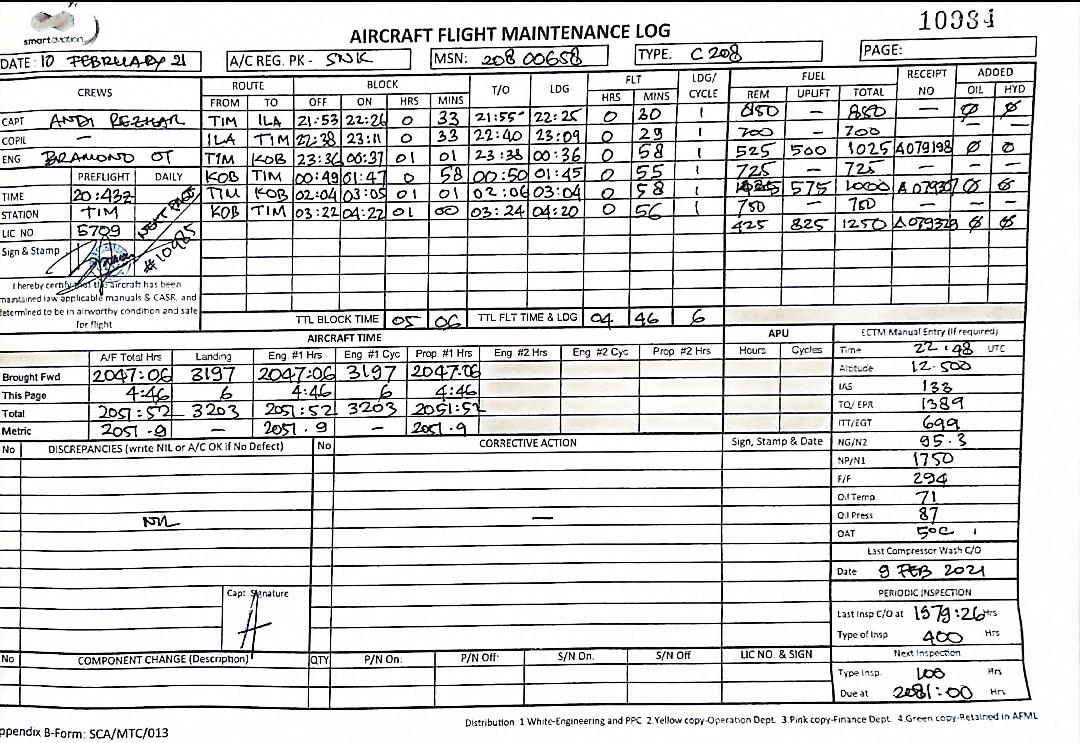 smart aviation
AIRCRAFT FLIGHT MAINTENANCE LOG
10984
DATE: 10 FEBRUARY 21 A/C REG. PK - SNK MSN: 208 00658 TYPE: C 208 PAGE:
CREWS ROUTE BLOCK T/O LDG FLT LDG/ CYCLE FUEL RECEIPT NO ADDED
FROM TO OFF ON HRS MINS HRS MINS REM UPLIFT TOTAL OIL HYD
CAPT ANDI REZHAR TIM ILA 21:53 22:26 0 33 21:55 22:25 0 30 1 850 — 850 — Ø Ø
COPIL — ILA TIM 22:38 23:11 0 33 22:40 23:09 0 29 1 700 — 700 — —
ENG BRAMOND OT TIM KOB 23:36 00:37 01 01 23:38 00:36 0 58 1 525 500 1025 A079198 Ø Ø
PREFLIGHT DAILY KOB TIM 00:49 01:47 0 58 00:50 01:45 0 55 1 725 — 725 — — —
TIME 20:43Z TIM KOB 02:04 03:05 01 01 02:06 03:04 0 58 1 575 1000 Ø Ø
STATION TIM KOB TIM 03:22 04:22 01 00 03:24 04:20 0 56 1 750 — 750 — — —
LIC NO 5709 425 825 1250 A079329 Ø Ø
NEXT PAGE
#10985
Sign & Stamp
I hereby certify that the aircraft has been
maintained law applicable manuals & CASR, and
determined to be in airworthy condition and safe
for flight
TTL BLOCK TIME 05 06 TTL FLT TIME & LDG 04 46 6
AIRCRAFT TIME APU ECTM Manual Entry (If required)
A/F Total Hrs Landing Eng #1 Hrs Eng #1 Cyc Prop #1 Hrs Eng #2 Hrs Eng #2 Cyc Prop #2 Hrs Hours Cycles
Brought Fwd 2047:06 3197 2047:06 3197 2047:06
This Page 4:46 6 4:46 6 4:46
Total 2051:52 3203 2051:52 3203 2051:52
Metric 2051.9 — 2051.9 — 2051.9
Time 22:48 UTC
Altitude 12.500
IAS 133
TQ/ EPR 1389
ITT/EGT 699
NG/N2 95.3
NP/N1 1750
F/F 294
Oil Temp 71
Oil Press 87
OAT 5°C
No DISCREPANCIES (write NIL or A/C OK if No Defect) No CORRECTIVE ACTION Sign, Stamp & Date
NIL —
Capt Signature
Last Compressor Wash C/O
Date 9 FEB 2021
PERIODIC INSPECTION
Last Insp C/O at 1579:26 Hrs
Type of Insp 400 Hrs
Next Inspection
Type Insp. 100 Hrs
Due at 2081:00 Hrs
No COMPONENT CHANGE (Description) QTY P/N On: P/N Off: S/N On. S/N Off LIC NO. & SIGN
Distribution: 1 White-Engineering and PPC 2.Yellow copy-Operation Dept. 3.Pink copy-Finance Dept. 4.Green copy-Retained in AFML
ppendix B-Form: SCA/MTC/013